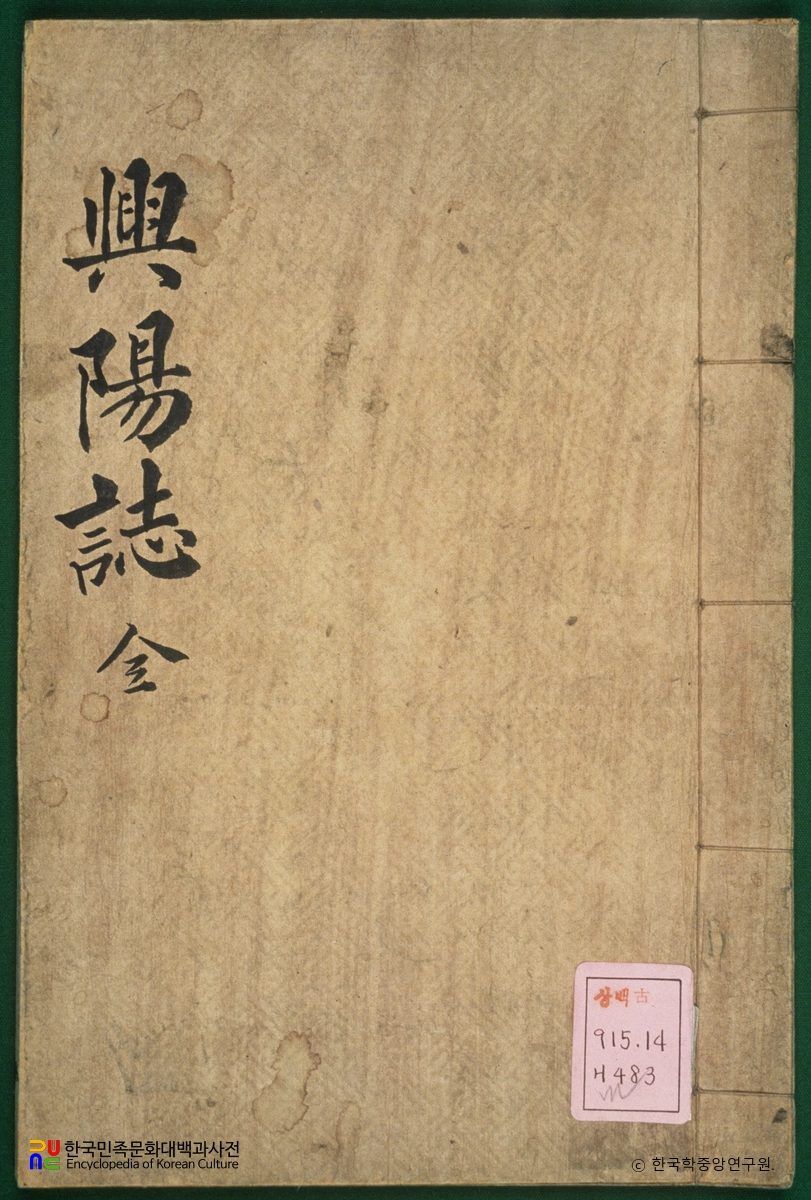 興陽誌 全
상백古
915.14
H483
한국민족문화대백과사전
Encyclopedia of Korean Culture
© 한국학중앙연구원.